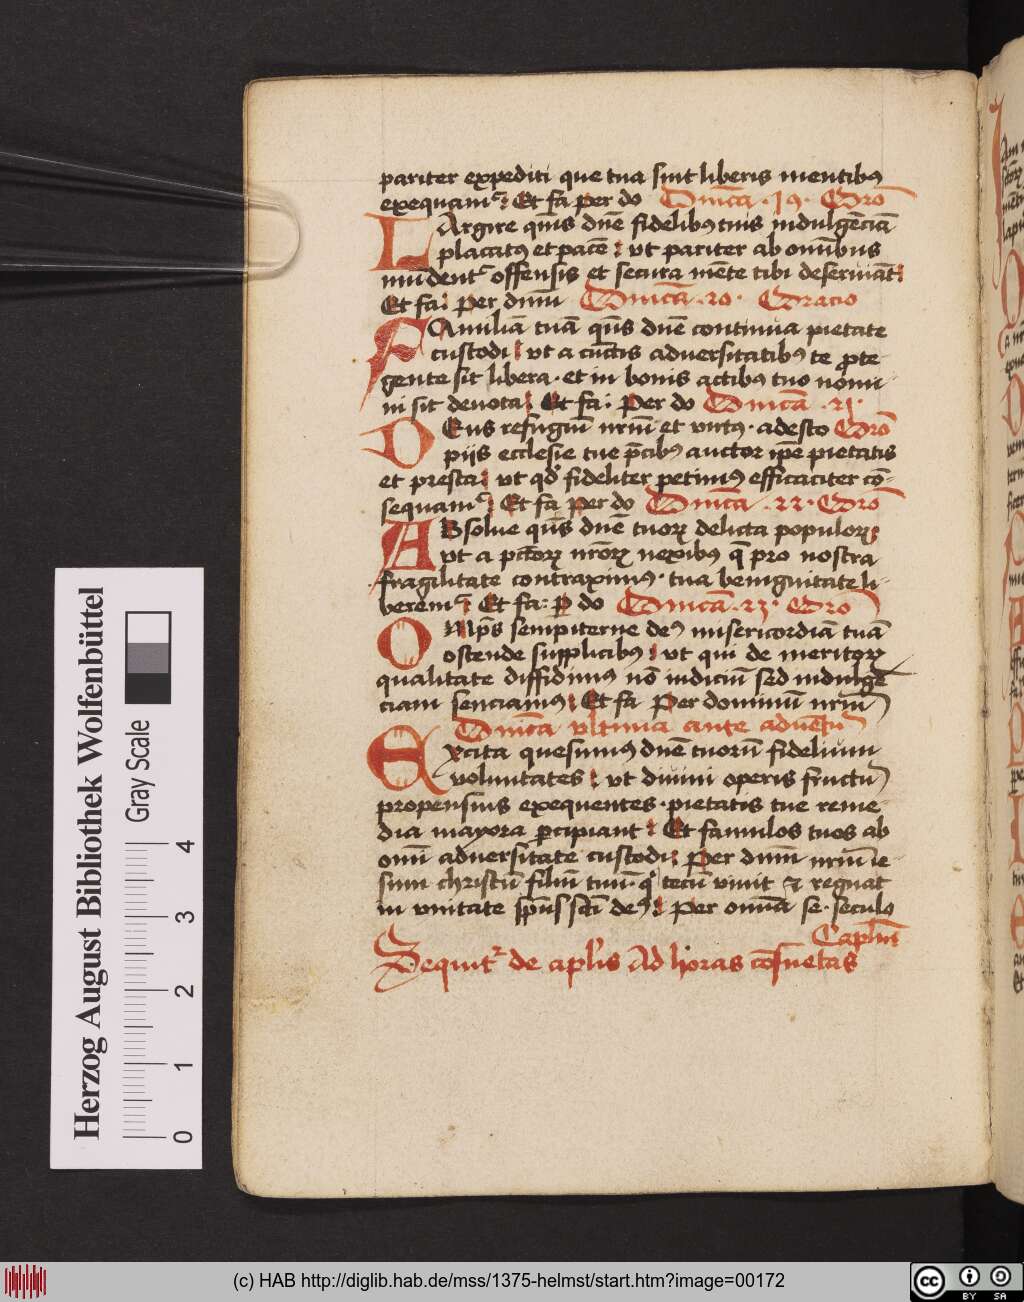 pariter expediti que tua sint liberis mentibꝰ
exequamᷣ Et fa per do Dnica ·19· Oro
LArgire qms dne fidelibꝰ tuis indulgēciā
placatꝰ et pacē ut pariter ab omībus
mūdentᷣ offensis et secura mēte tibi deseruiāt
Et fa per dnm Dnica ·20· Oracio
FAmiliā tuā qms dnē continua pietate
custodi ut a cūctis adversitatibꝰ te prote
gente sit libera · et in bonis actibꝰ tuo nomi
ni sit devota Et fa Per do Dnica ·21·
DEus refugiū nrm et virtꝰ · adesto Oro
piis ecclesie tue pcibꝰ auctor ipe pietatis
et presta ut qd fideliter petimꝰ efficaciter cō
sequamᷣ Et fa per do Dnica ·22· Oro
ABsolve qms dnē tuoꝝ delicta populoꝝ
ut a pctoꝝ nroꝝ nexibꝰ q pro nostra
fragilitate contraximꝰ · tua benignitate li
beremᷣ Et fa: p do Dnica ·23· Oro
OMps sempiterne deꝰ misericordiā tuā
ostende supplicibꝰ ut qui de meritoꝝ
qualitate diffidimꝰ nō iudiciū sed indulgē
ciam senciamꝰ Et fa Per dominū nrm
Dnica ultima ante adventū
EXcita quesumꝰ dnē tuorū fidelium
voluntates ut divini operis fructū
propensius exequentes · pietatis tue reme
dia mayora pcipiant Et famulos tuos ab
omi adversitate custodi Per dnm nrm ie
sum christū filiū tuū · q tecū vivit et regnat
in unitate spūs scti deꝰ Per omia se · seculo
Caplm
Sequitᷣ de aplis Ad horas cōsuetas
Herzog August Bibliothek Wolfenbüttel
Gray Scale
0 1 2 3 4
(c) HAB http://diglib.hab.de/mss/1375-helmst/start.htm?image=00172
cc BY SA